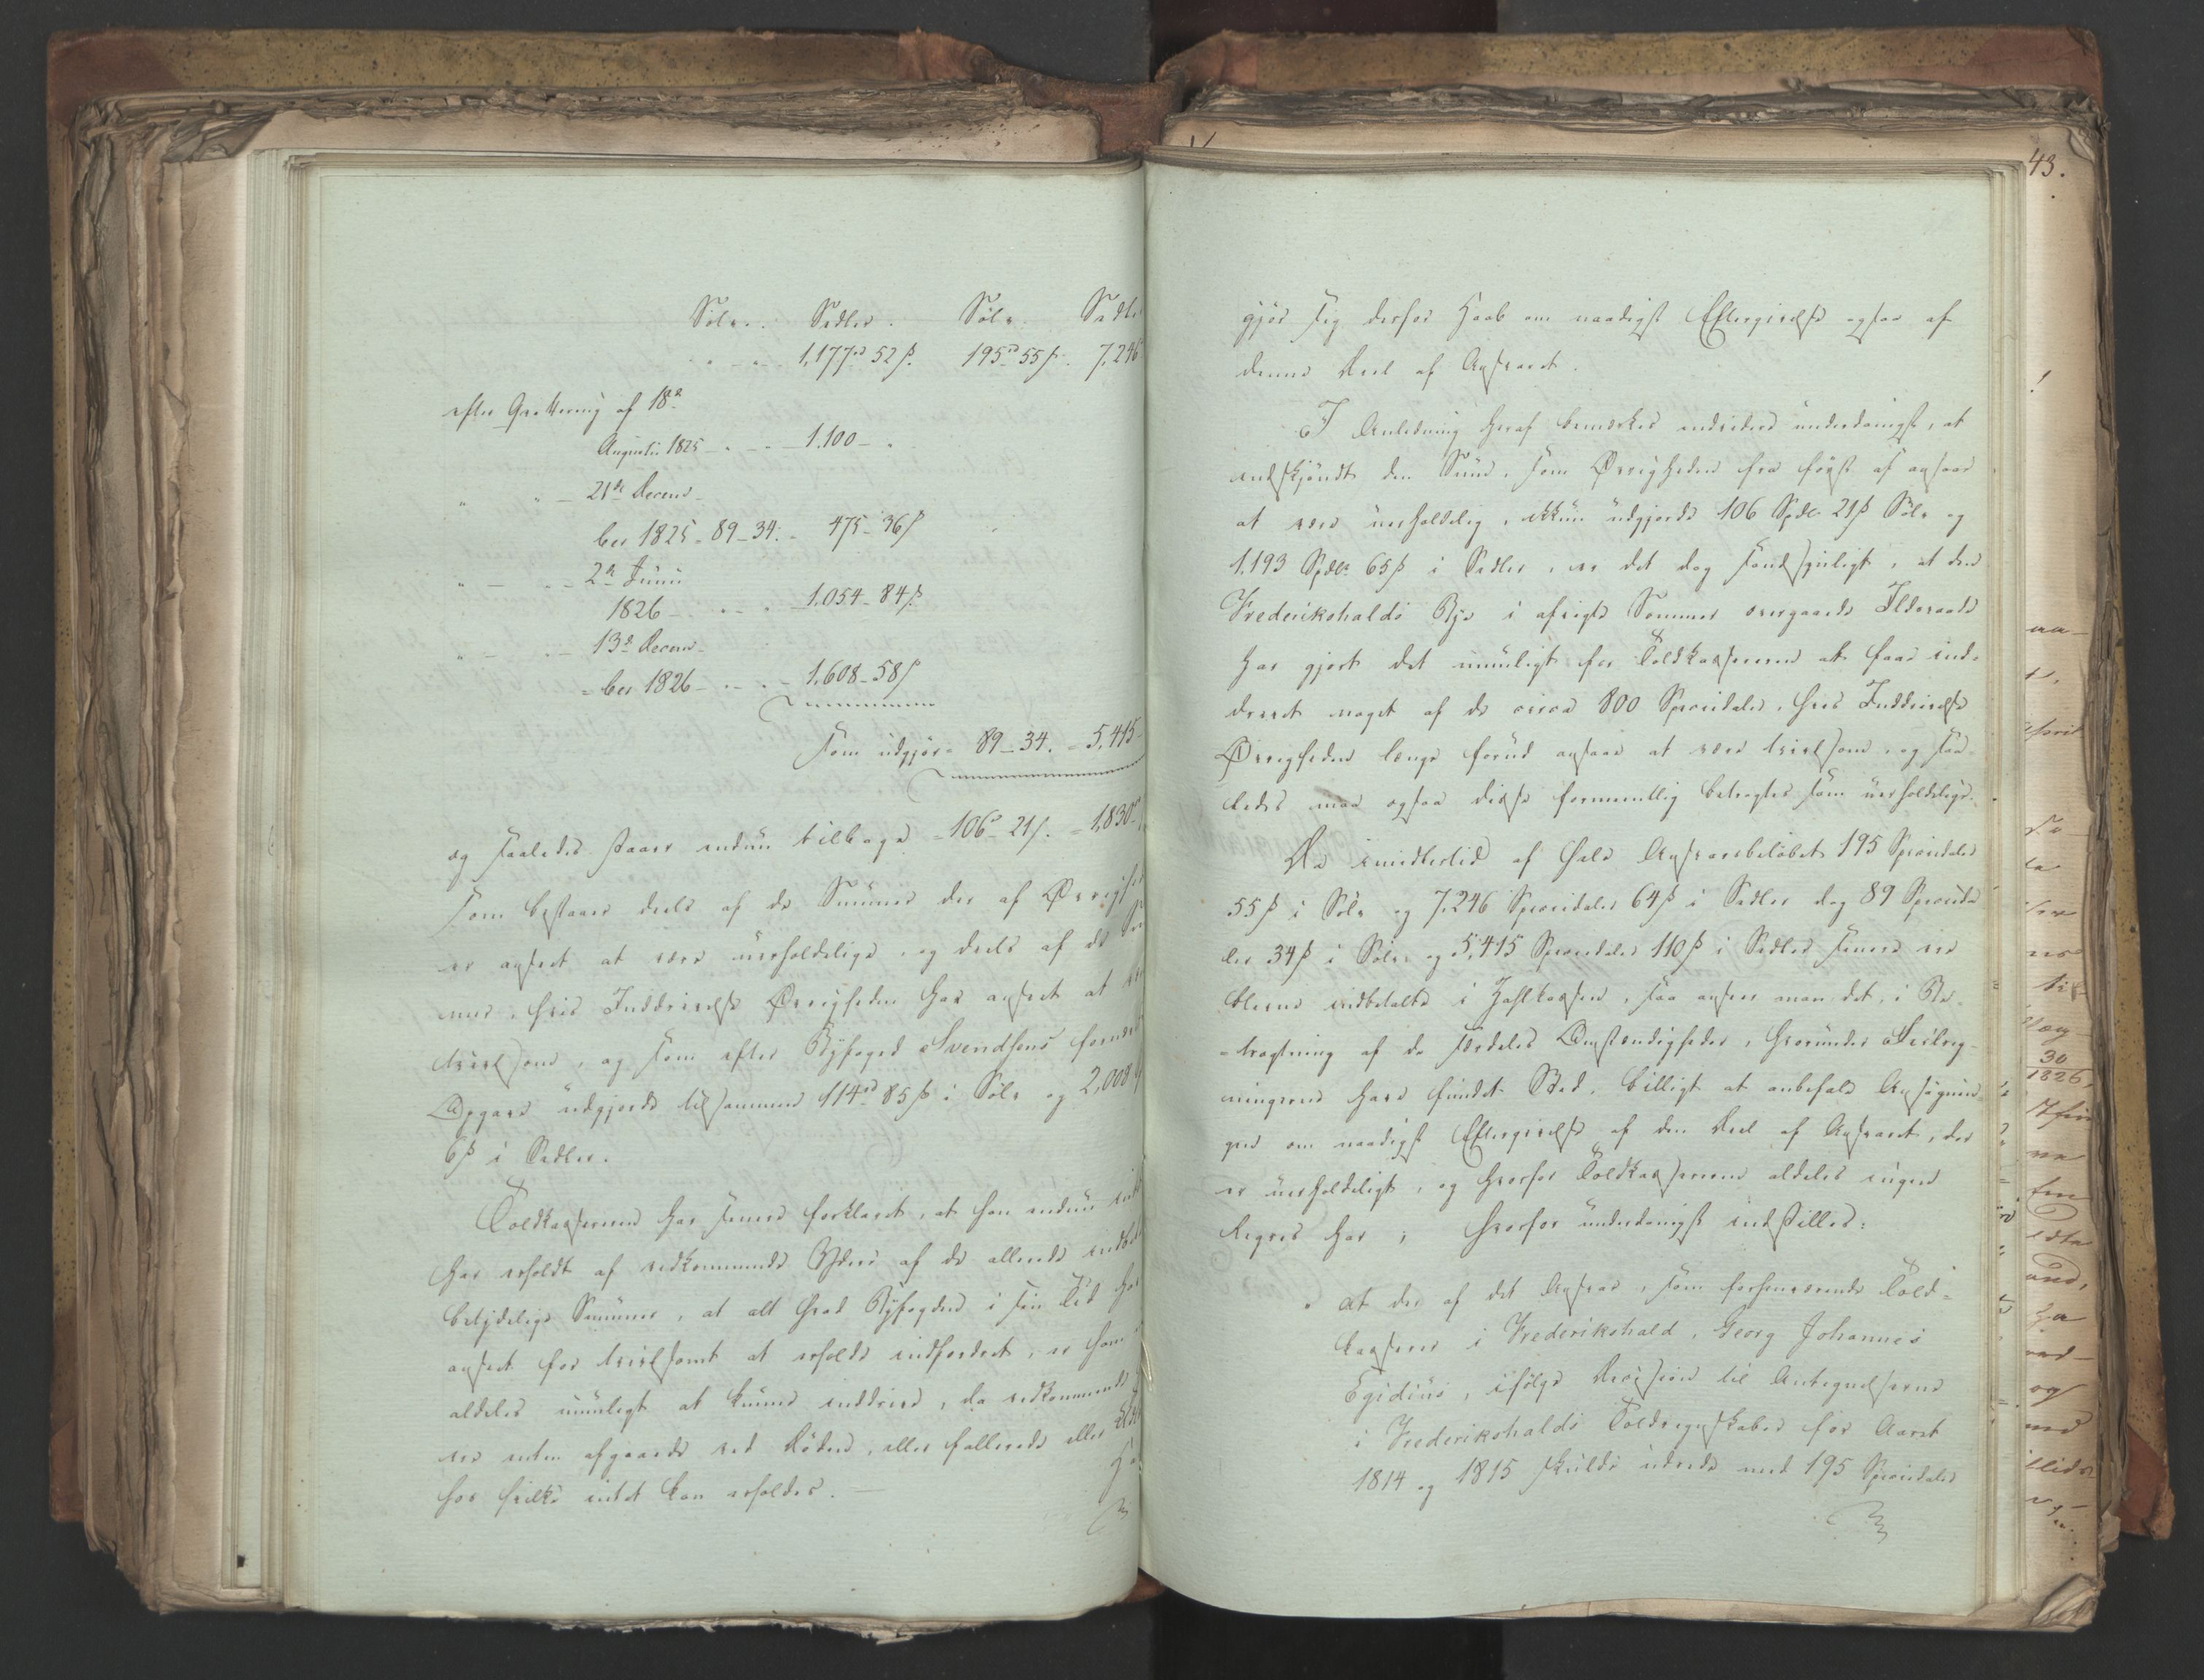 Sölv. Sedler. Sölv. Sedle
1,177 52 ß. 195 55 ß. 7,246
efter Qvittering af 18de
Augusti 1825 1,100
" " 21de Decem-
ber 1825 89-34. 475-36 ß
" 2de Junii
1826 1,054-84 ß
" 13de Decem-
ber 1826 1,608-58 ß
som udgjör 89-34. 5,415
og saaledes staaer endnu tilbage 106-21 ß. 1,830
som bestaaer deels af de Summer der af Övrigh
er anseet at være uerholdelige, og deels af de
mer, hvis Inddrivelse Övrigheden har anseet at
tvivlsom, og som efter Byfoged Svendsens
Opgave udgjorde tilsammen 114 85 ß i Sölv og 2,008
6 ß i Sedler.
Toldkassereren har senere forklaret, at han endnu
har erholdt af vedkommende Ydere af de allerede
betydelige Summer, at alt hvad Byfogden i sin Tid
anseet for tvivlsomt at erholde inddrevet, er ham
aldeles umuligt at kunne inddrive, da vedkommende
ere enten afgaaede ved Döden, eller fallerede eller
hos hvilke intet kan erholdes.
43.
gjör sig derfor Haab om naadigst Eftergivelse ogsaa af
denne Deel af Ansvaret.
I Anledning heraf bemærkes endvidere underdanigst, at
endskjöndt den Sum, som Övrigheden fra först af ansaae
at være uerholdelig, ikkun udgjorde 106 Spdlr 21 ß Sölv og
1,193 Spdlr 65 ß i Sedler, er det dog sandsynligt, at den
Frederikshalds Bye i afvigte Sommer overgaaede Ildsvaade
har gjort det umuligt for Toldkassereren at faae ind-
drevet noget af de circa 800 Speciedaler, hvis Inddrivelse
Övrigheden længe forud ansaae at være tvivlsom, og saa-
ledes maa ogsaa disse formeentlig betragtes som uerholdelige.
Da imidlertid af hele Ansvarsbelöbet 195 Speciedaler
55 ß i Sölv og 7,246 Speciedaler 64 ß i Sedler dog 89 Specieda
ler 34 ß i Sölv og 5,415 Speciedaler 110 ß i Sedler senere ere
blevne indbetalte i Zahlkassen, saa anseer man det, i Be-
tragtning af de særdeles Omstændigheder, hvorunder
ningerne have fundet Sted, billigt at anbefale Ansögnin-
gen om naadigst Eftergivelse af den Deel af Ansvaret, der
er uerholdeligt, og hvorfor Toldkassereren aldeles ingen
Regres har; hvorfor underdanigst indstilles:
" at der af det Ansvar, som forhenværende Told-
kasserer i Frederikshald, Georg Johannes
Egidius, ifölge Decision til Antegnelserne
i Frederikshalds Toldregnskaber for Aaret
1814 og 1815 skulde udrede med 195 Speciedaler
30
1826,